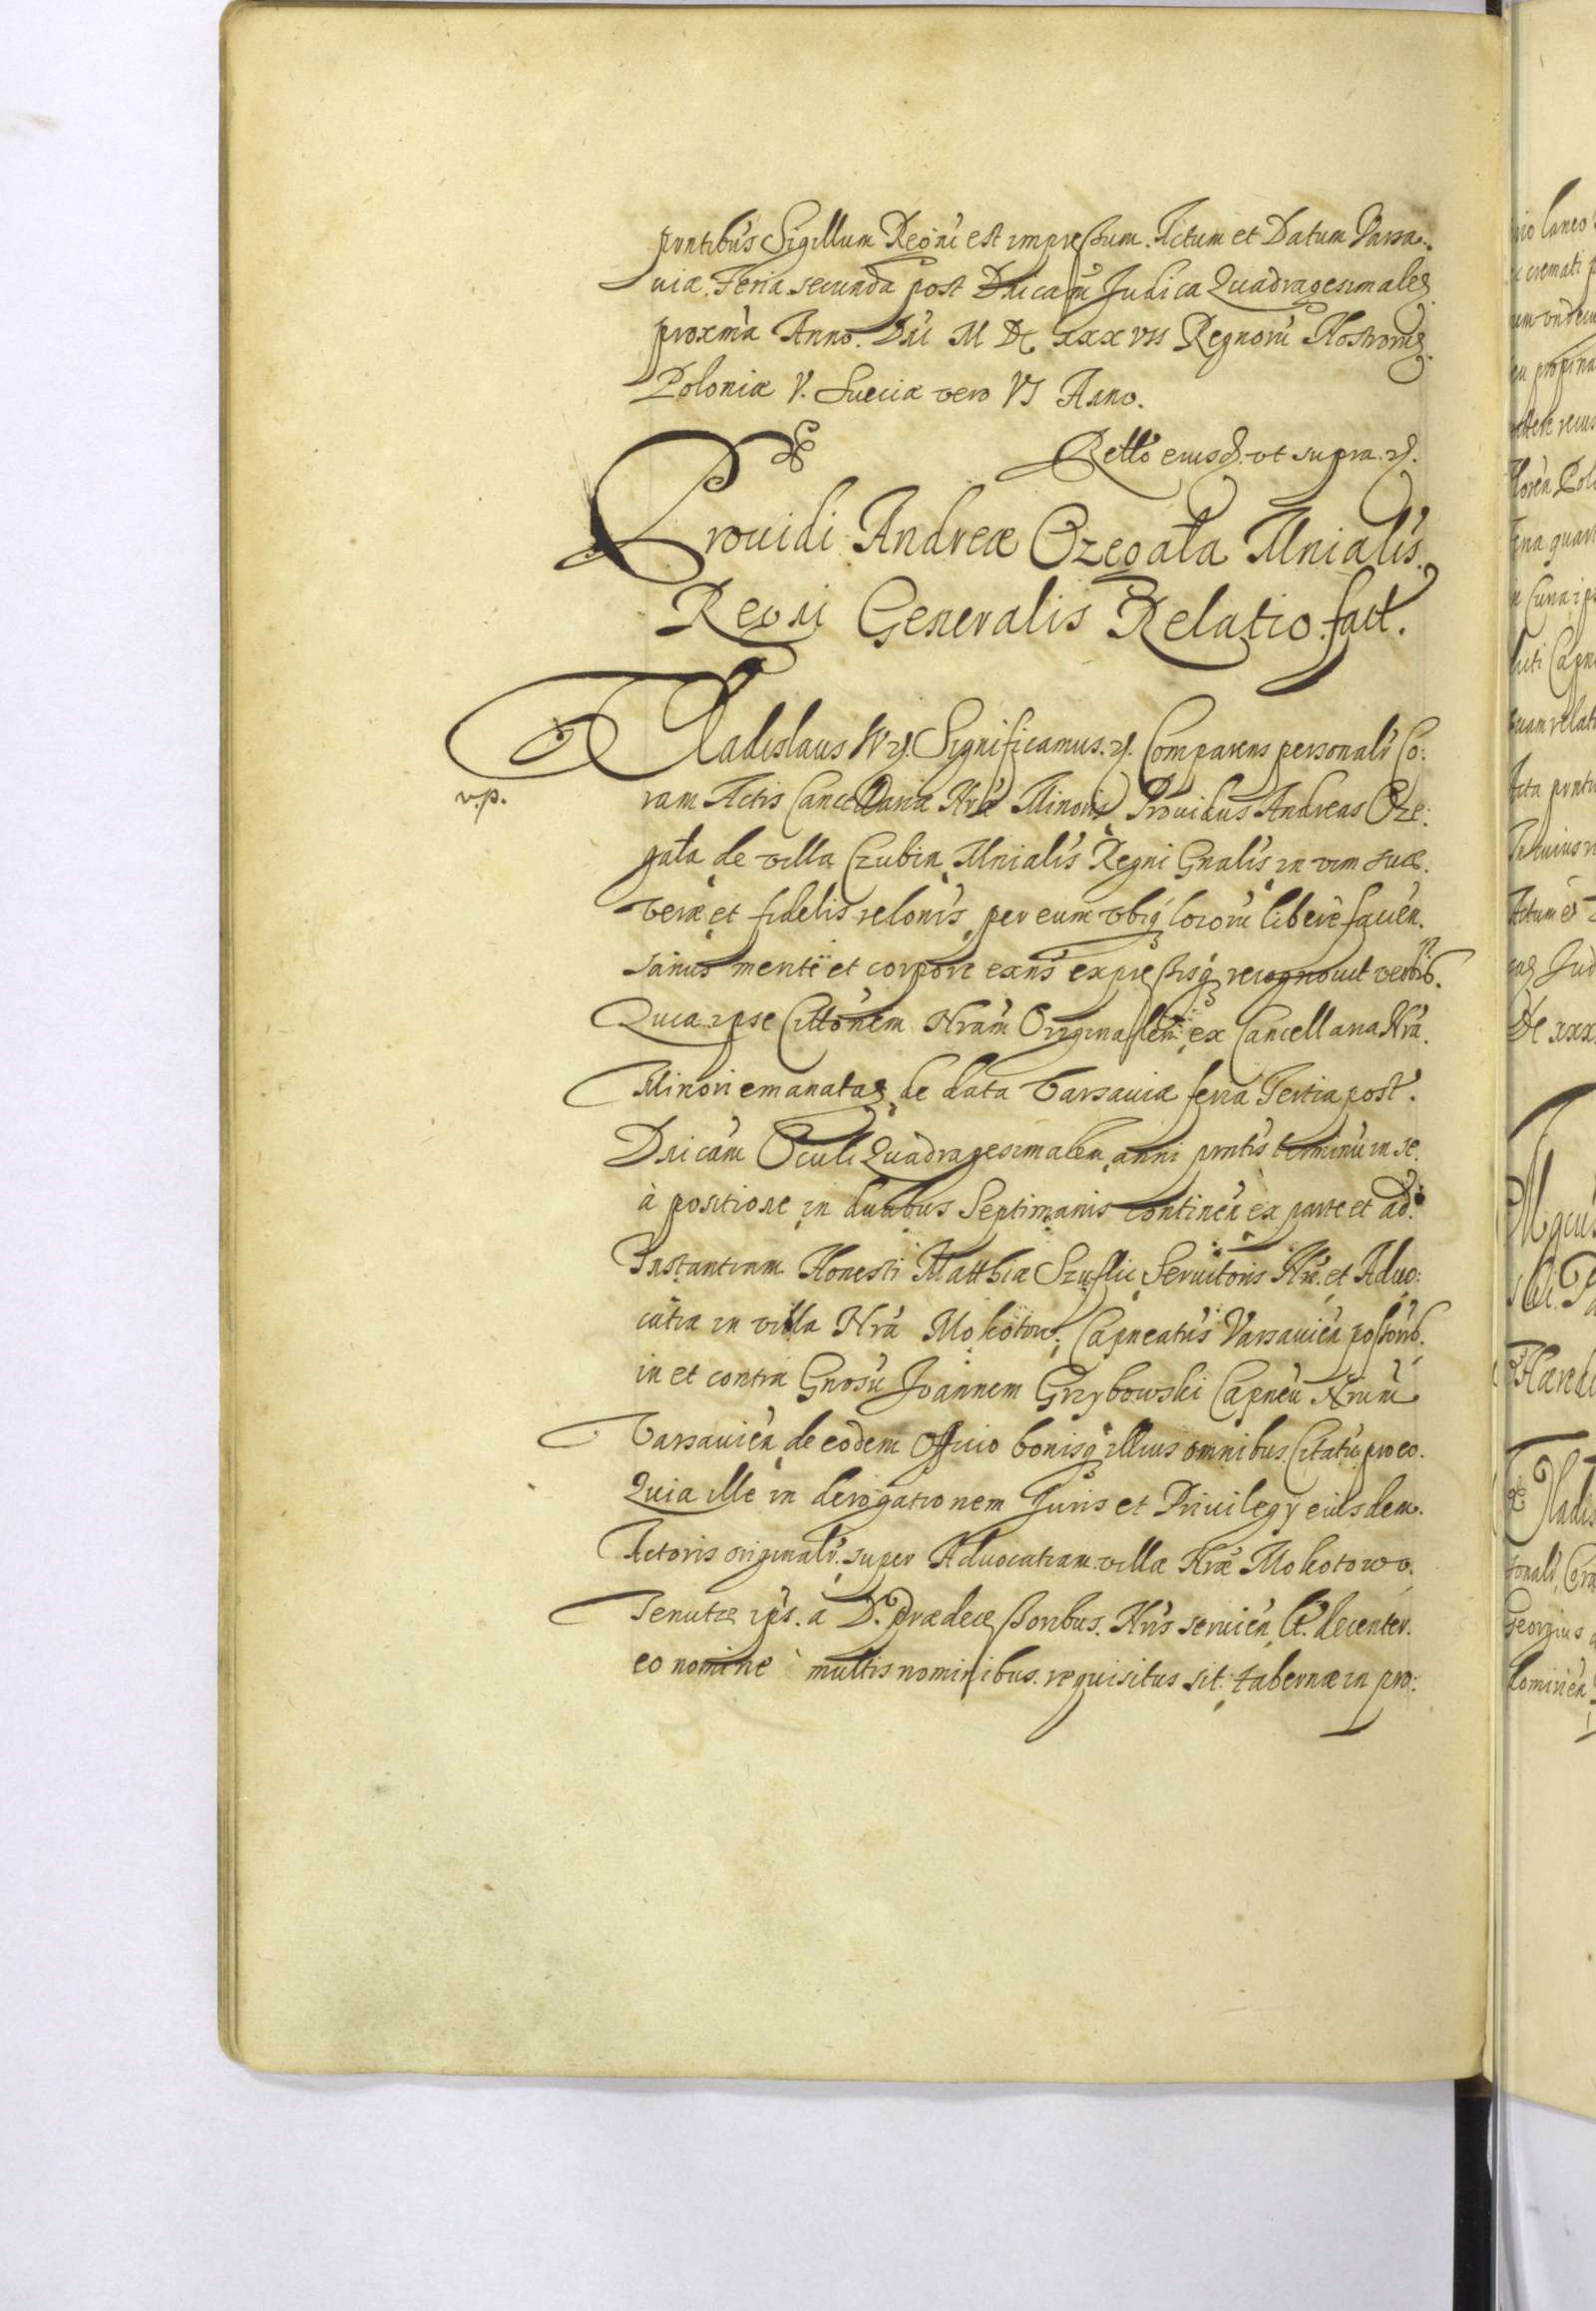 pntibus Sigillum Regni est impressum. Actum et Datum Varsa:
uiæ. Feria secunda post Dnicam Judica Quadragesimalem
proxma Anno. Dni M DC xxxvii Regnoru Nostrorum
Poloniæ V. Sueciæ vero VI Anno.
Rello eiusd. vt supra.
Prouidi Andreæ Ozegała Mnialis
Regni Generalis Relatio fact.
Vladislaus IV. Significamus. Comparens personalr Co:
v.p.
ram Actis Cancellariæ Nræ Minoris Prouidus Andreas Oze:
gała de villa Czubin Mnialis Regni Gnalis in vim suæ
veræ et fidelis relonis per eum vbiq locoru libere facien.
sanus mente et corpore exns expressisq recognouit verbis.
Quia ipse Cittonem Nram Originalem ex Cancellaria Nra
Minori emanatam de data Varsauiæ feria Tertia post
Dnicam Oculi Quadragesimalem anni pntis terminu in se
à positione in duabus Septimanis continen ex parte et ad
Instantiam Honesti Matthiæ Seruitoris Nri et Aduo:
catiæ in villa Nra Mokotow Capneatus Varsauien possoris
in et contra Gnosu Joannem Grzybowski Capneu Nrum
Varsauien de eodem Officio bonisq illius omnibus Citatu pro eo.
Quia ille in derogationem Juris et Priuilegy eiusdem
Actoris originalr super Aduocatiam villæ Nræ Mokotowo
Tenutæ ips. a D. Prædecessoribus Nris seruien decenter
eo nomine multis nominibus requisitus sit tabernæ in pro: